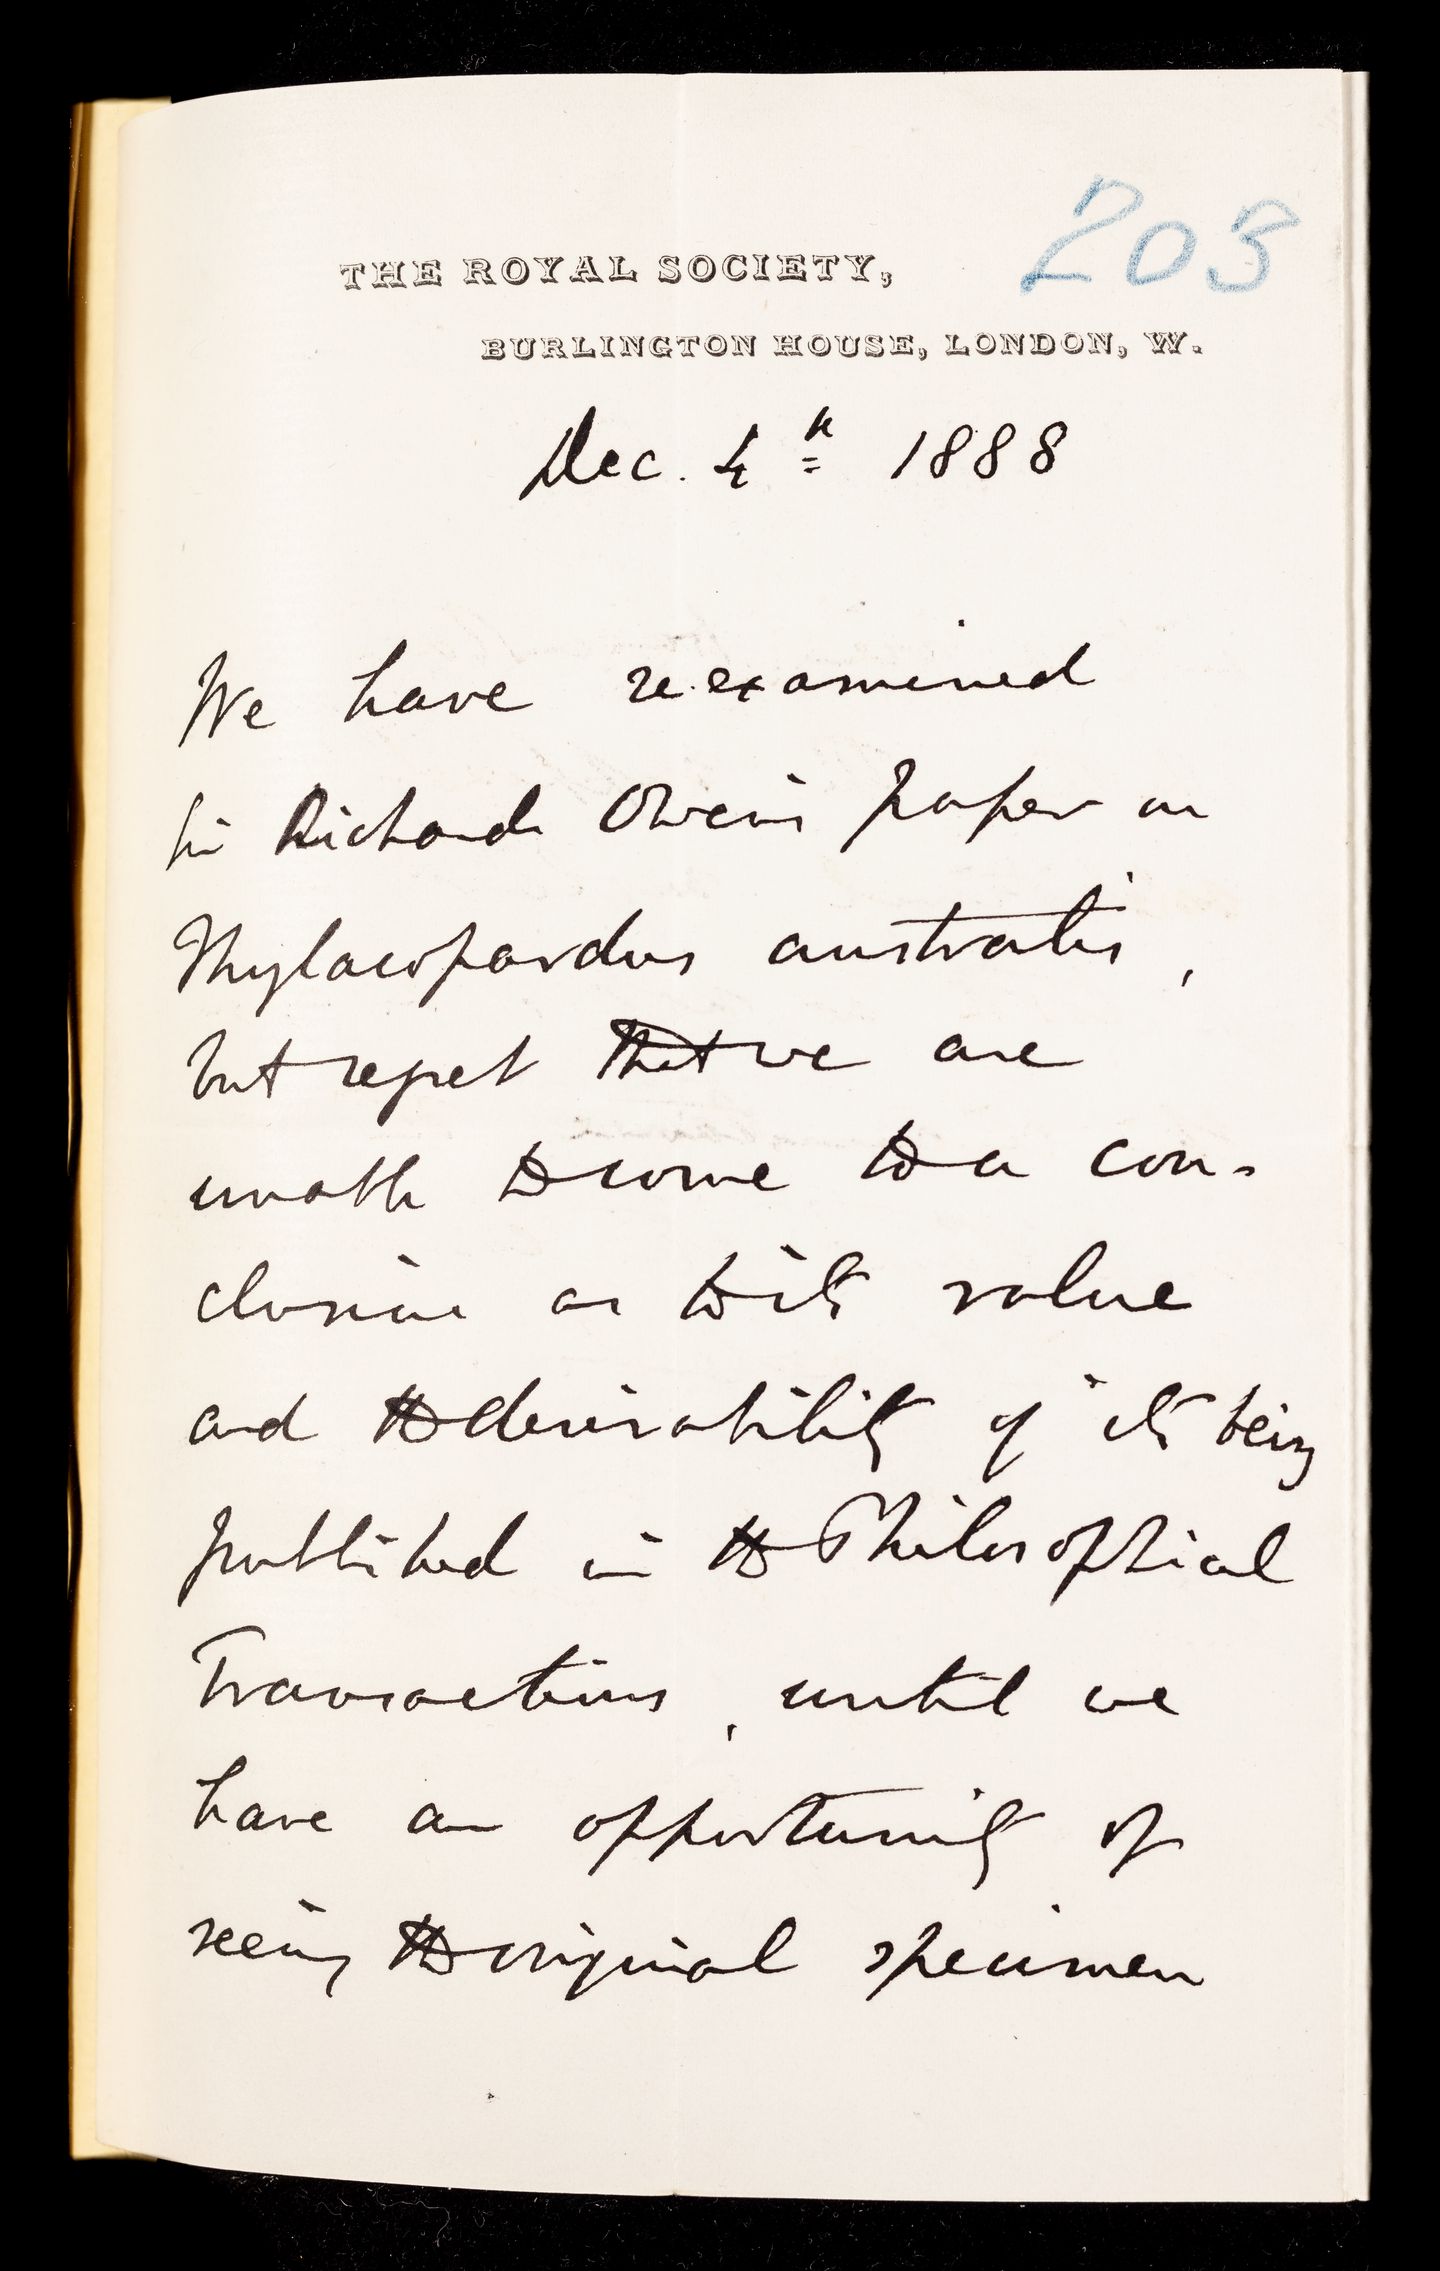 203
THE ROYAL SOCIETY,
BURLINGTON HOUSE, LONDON, W.
Dec. 4th 1888
We have re-examined
Sir Richard Owen's paper on
Thylacopardus australis,
but regret that we are
unable to come to a con-
clusion as to its value
and the desirability of its being
published in the Philosophical
Transactions, until we
have an opportunity of
seeing the original specimen